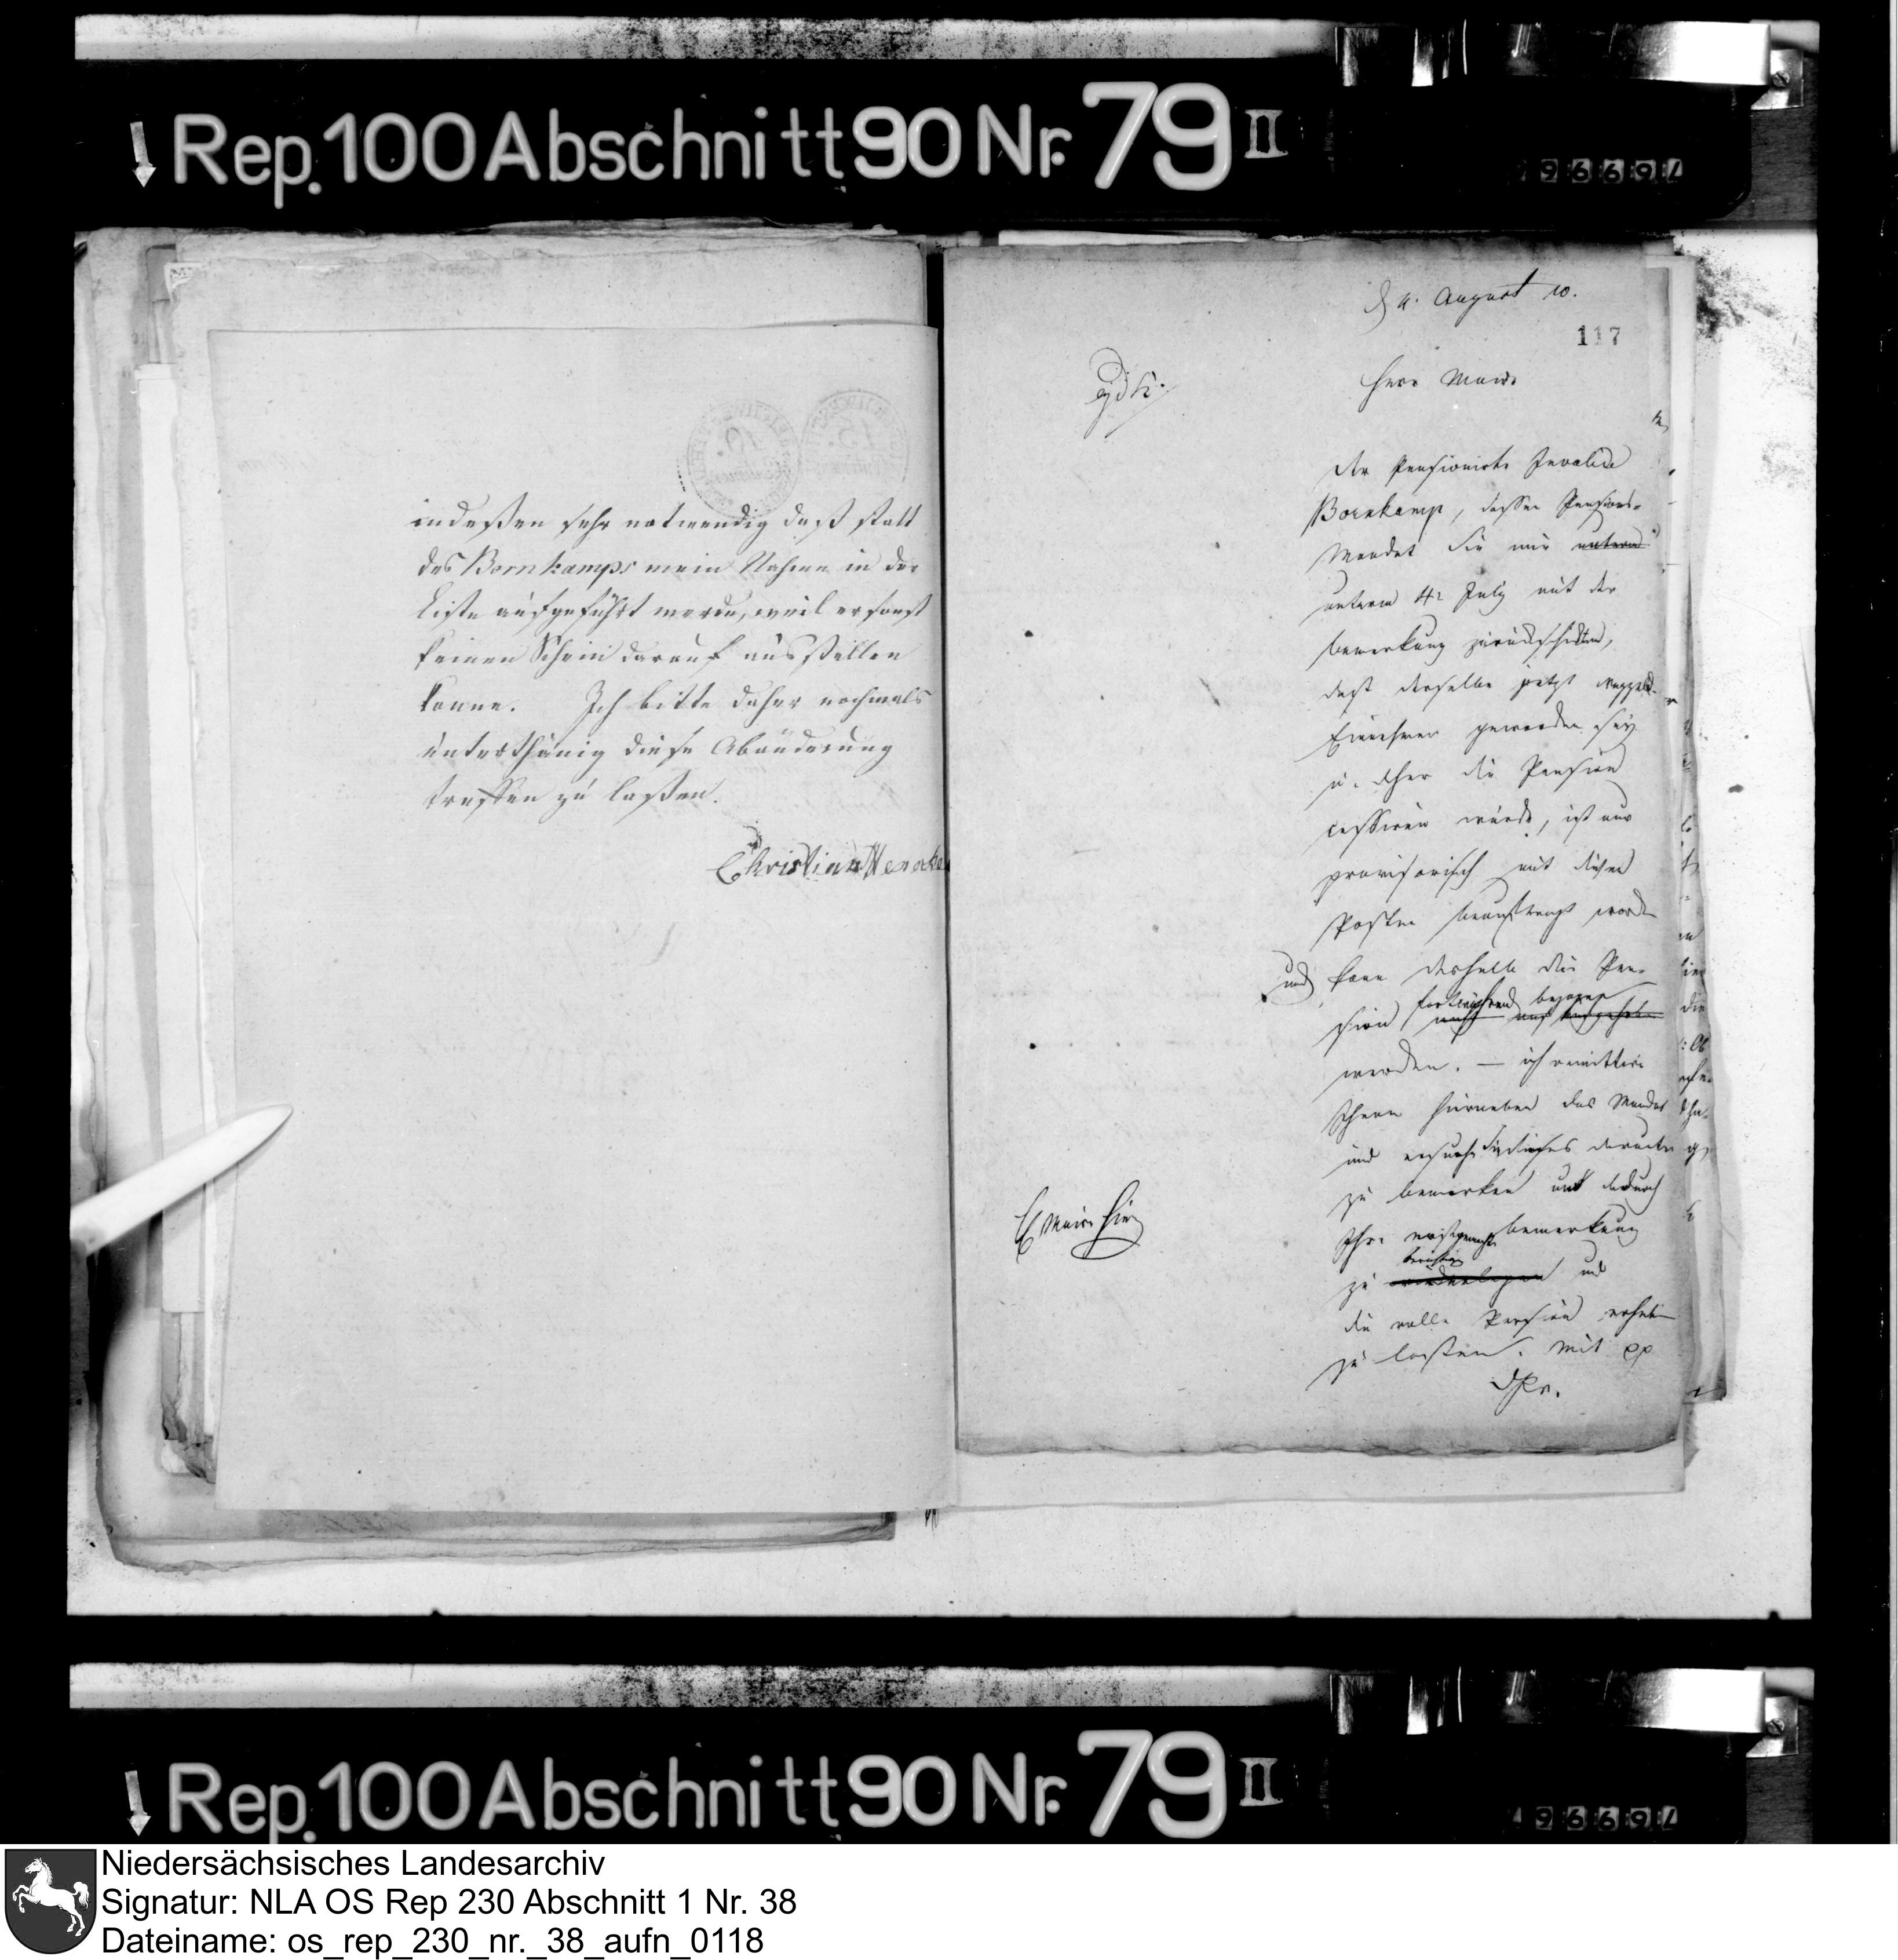 Rep. 100 Abschnitt 90 Nr. 79 II
79661
indeßen sehr notwendig daß statt
des Bornkamps mein Nahme in der
Liste aufgeführt werde, weil er sonst
keinen Schein darauf ausstellen
könne. Ich bitte daher nochmals
unterthänig diese Abänderung
treffen zu laßen.
Christian Hencke
4. August 10.
117
Herr Maire
Der Pensionirte Invalide
Bornkamp, dessen Pensions-
Mandat Sie mir unterm
unterm 4t July mit der
Bemerkung zurückschickten,
daß derselbe jetzt
Einnehmer geworden sey
u. daher die Pension
cessiren würde, ist nur
provisorisch mit diesem
Posten beauftragt worden
und kann deshalb die Pen-
sion fortwährend bezogen
werden. — ich remittire
Ihnen hierneben das Mandat
und ersuche Sie dieses darunter
zu bemerken und dadurch
Ihre erstgemachte Bemerkung
berichtigen
zu widerlegen und
die volle Pension erheben
zu lassen. Mit pp
DPr.
Maire hier
Rep. 100 Abschnitt 90 Nr. 79 II
79661
Niedersächsisches Landesarchiv
Signatur: NLA OS Rep 230 Abschnitt 1 Nr. 38
Dateiname: os_rep_230_nr._38_aufn_0118